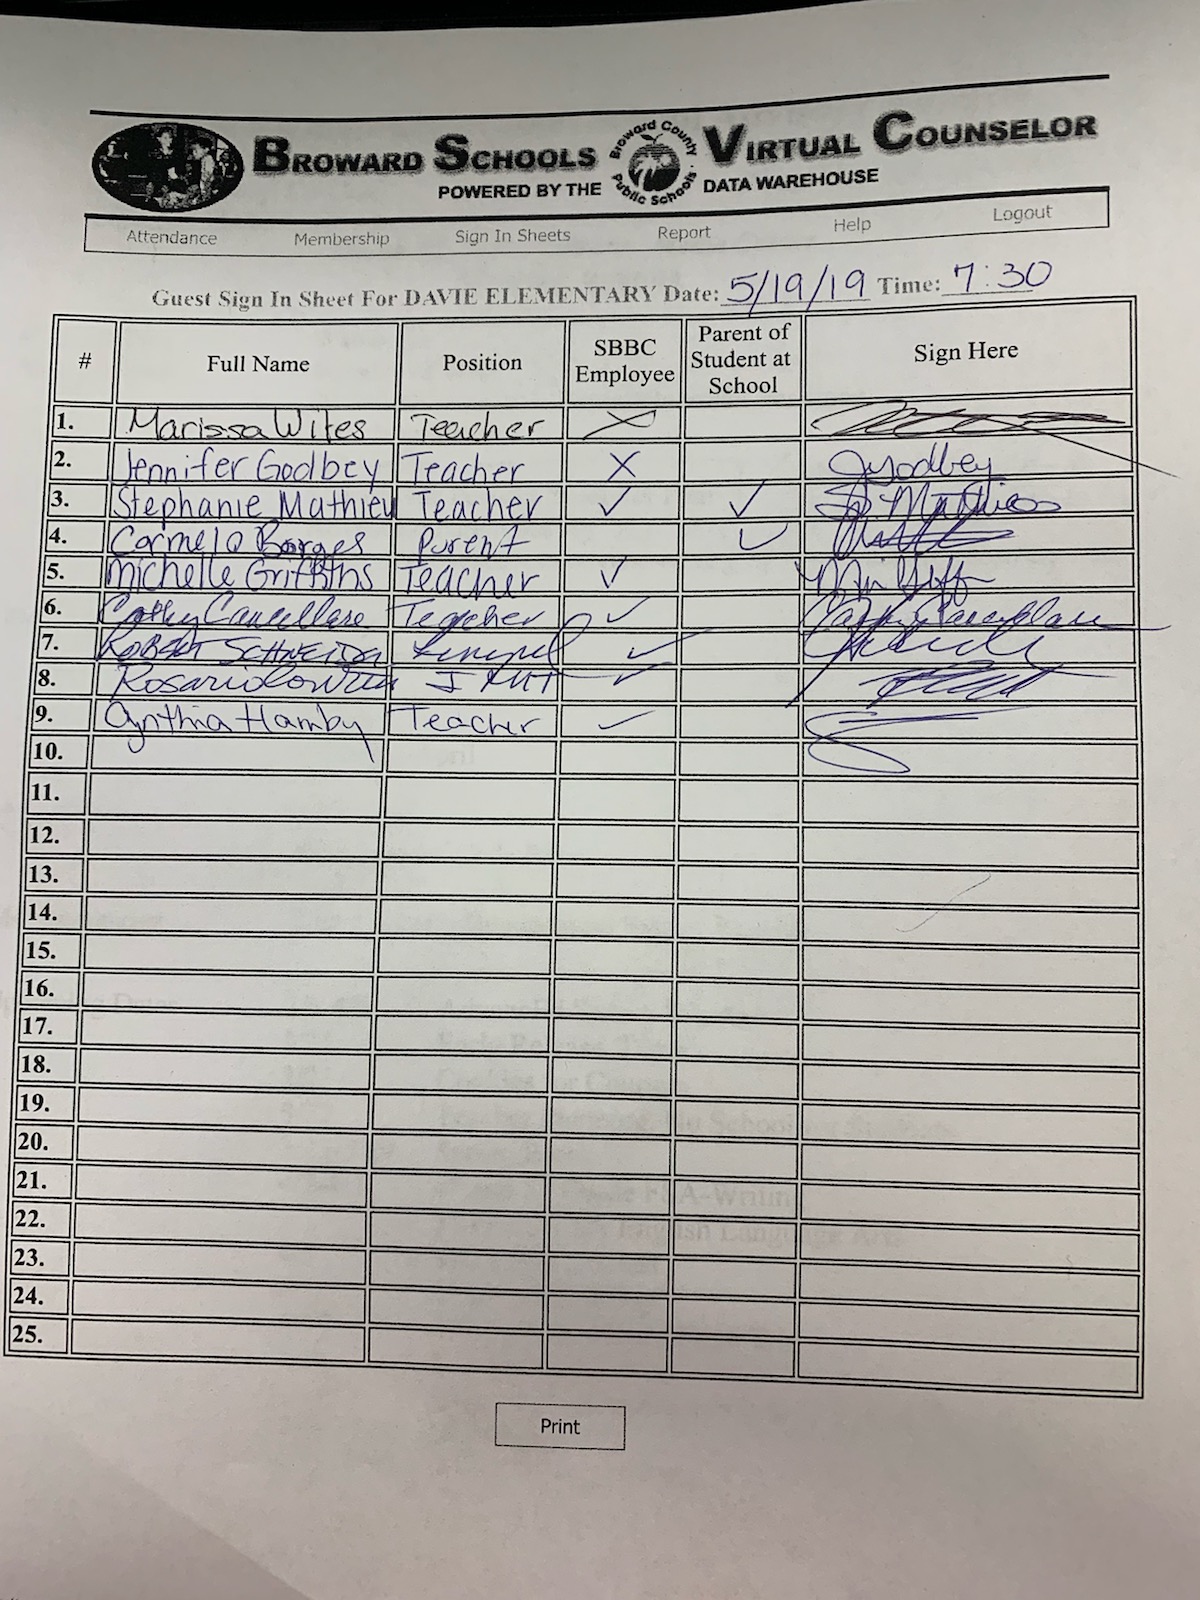 BROWARD SCHOOLS Broward County Public Schools VIRTUAL COUNSELOR
POWERED BY THE DATA WAREHOUSE
Attendance Membership Sign In Sheets Report Help Logout
Guest Sign In Sheet For DAVIE ELEMENTARY Date: 5/19/19 Time: 7:30
# Full Name Position SBBC Employee Parent of Student at School Sign Here
1. Marissa Wires Teacher X
2. Jennifer Godbey Teacher X JGodbey
3. Stephanie Mathieu Teacher ✓ ✓ S. Mathieu
4. Carmelo Borges Parent ✓
5. Michelle Griffiths Teacher ✓
6. Cathy Cancellare Teacher ✓ Cathy Cancellare
7. ROBERT SCHNEIDER Principal ✓
8. Rosario ✓
9. Cynthia Hamby Teacher ✓
10.
11.
12.
13.
14.
15.
16.
17.
18.
19.
20.
21.
22.
23.
24.
25.
Print